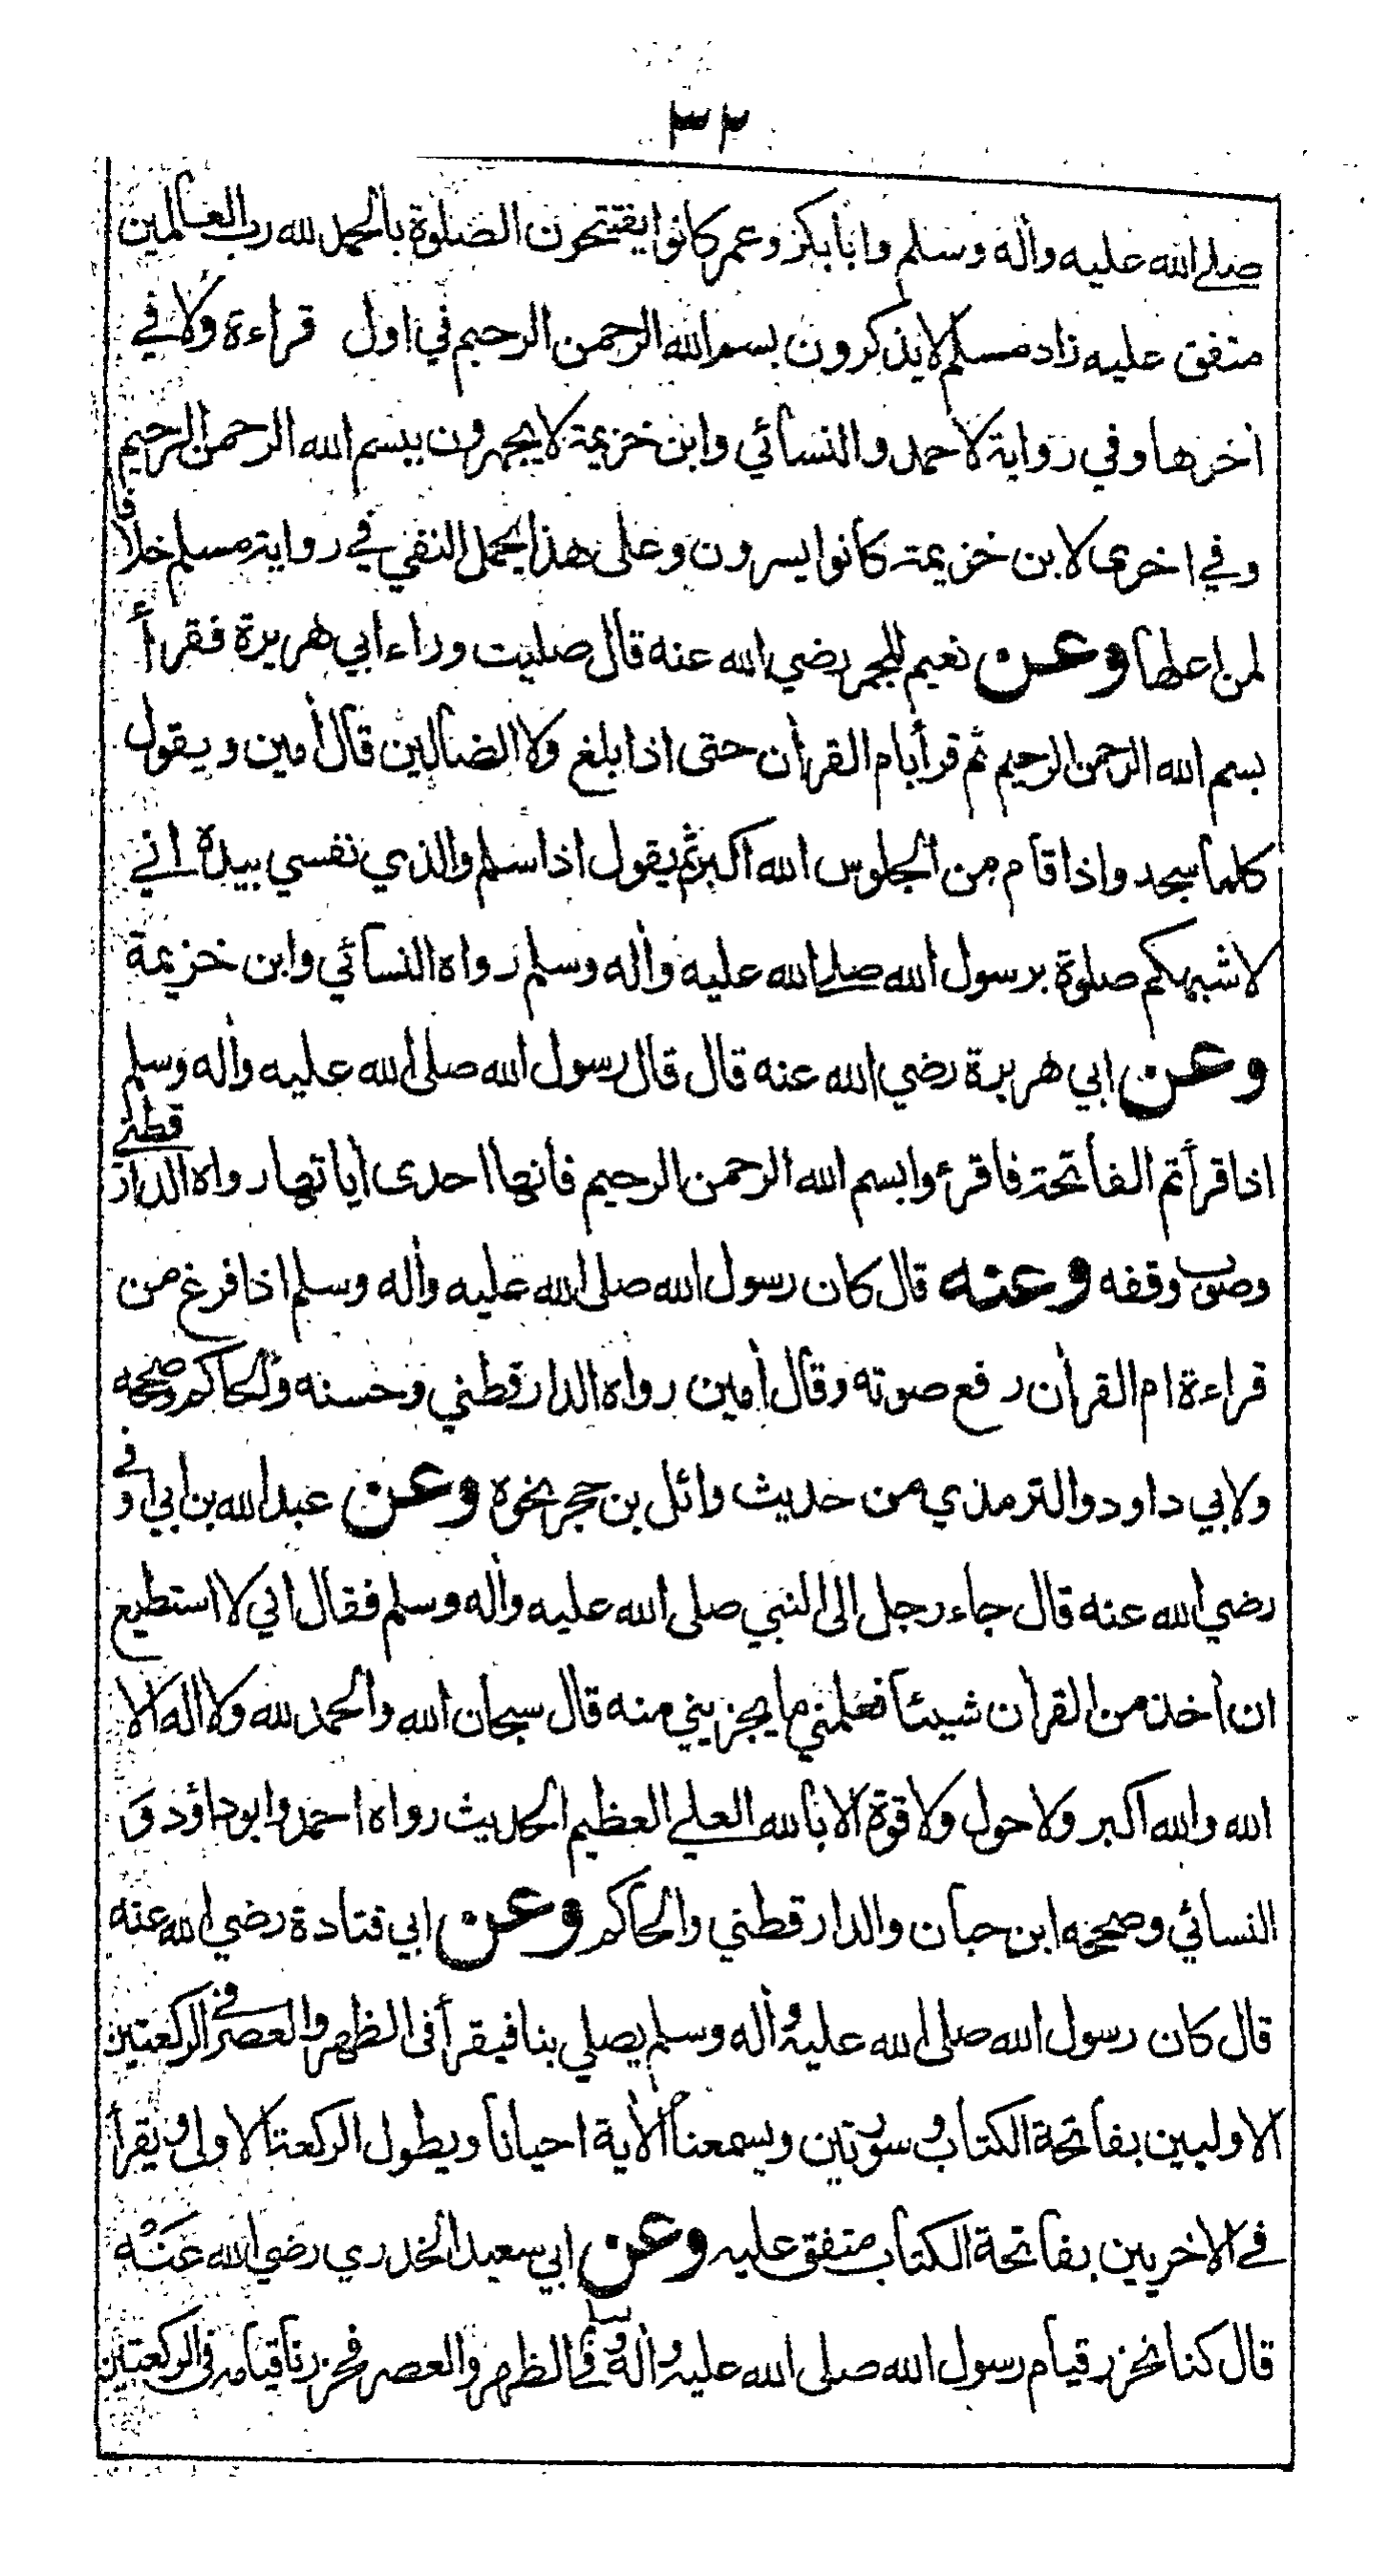 ٣٢
صلى الله عليه وأله وسلم وابا بكر وعمر كانوا يفتتحون الصلوة بالحمد لله رب العالمين
متفق عليه زاد مسلم لا يذكرون بسم الله الرحمن الرحيم في اول قراءة ولا في
أخرها وفي رواية لاحمد والنسائي وابن خزيمة لا يجهرون ببسم الله الرحمن الرحيم
وفي اخرى لابن خزيمة كانوا يسرون وعلى هذا يحمل النفي في رواية مسلم خلافا
لمن اعلها وعن نعيم المجمر رضي الله عنه قال صليت وراء ابي هريرة فقرأ
بسم الله الرحمن الرحيم ثم قرأ بام القرأن حتى اذا بلغ ولا الضالين قال أمين ويقول
كلما سجد واذا قام من الجلوس الله اكبر ثم يقول اذا سلم والذي نفسي بيده اني
لاشبهكم صلوة برسول الله صلى الله عليه وأله وسلم رواه النسائي وابن خزيمة
وعن ابي هريرة رضي الله عنه قال قال رسول الله صلى الله عليه وأله وسلم
اذا قرأتم الفاتحة فاقرءوا بسم الله الرحمن الرحيم فانها احدى أياتها رواه الدارقطني
وصوب وقفه وعنه قال كان رسول الله صلى الله عليه وأله وسلم اذا فرغ من
قراءة ام القرأن رفع صوته وقال أمين رواه الدارقطني وحسنه والحاكم وصححه
ولابي داود والترمذي من حديث وائل بن حجر نحوه وعن عبد الله بن ابي اوفى
رضي الله عنه قال جاء رجل الى النبي صلى الله عليه وأله وسلم فقال اني لا استطيع
ان أخذ من القرأن شيئا فعلمني ما يجزيني منه قال سبحان الله والحمد لله ولا اله الا
الله والله اكبر ولا حول ولا قوة الا بالله العلي العظيم الحديث رواه احمد وابو داؤد و
النسائي وصححه ابن حبان والدارقطني والحاكم وعن ابي قتادة رضي الله عنه
قال كان رسول الله صلى الله عليه وأله وسلم يصلي بنا فيقرأ فى الظهر والعصر في الركعتين
الاوليين بفاتحة الكتاب وسورتين ويسمعنا الأية احيانا ويطول الركعة الاولى ويقرأ
في الاخريين بفاتحة الكتاب متفق عليه وعن ابي سعيد الخدري رضي الله عنه
قال كنا نحزر قيام رسول الله صلى الله عليه وأله وسلم في الظهر والعصر فحزرنا قيامه فى الركعتين